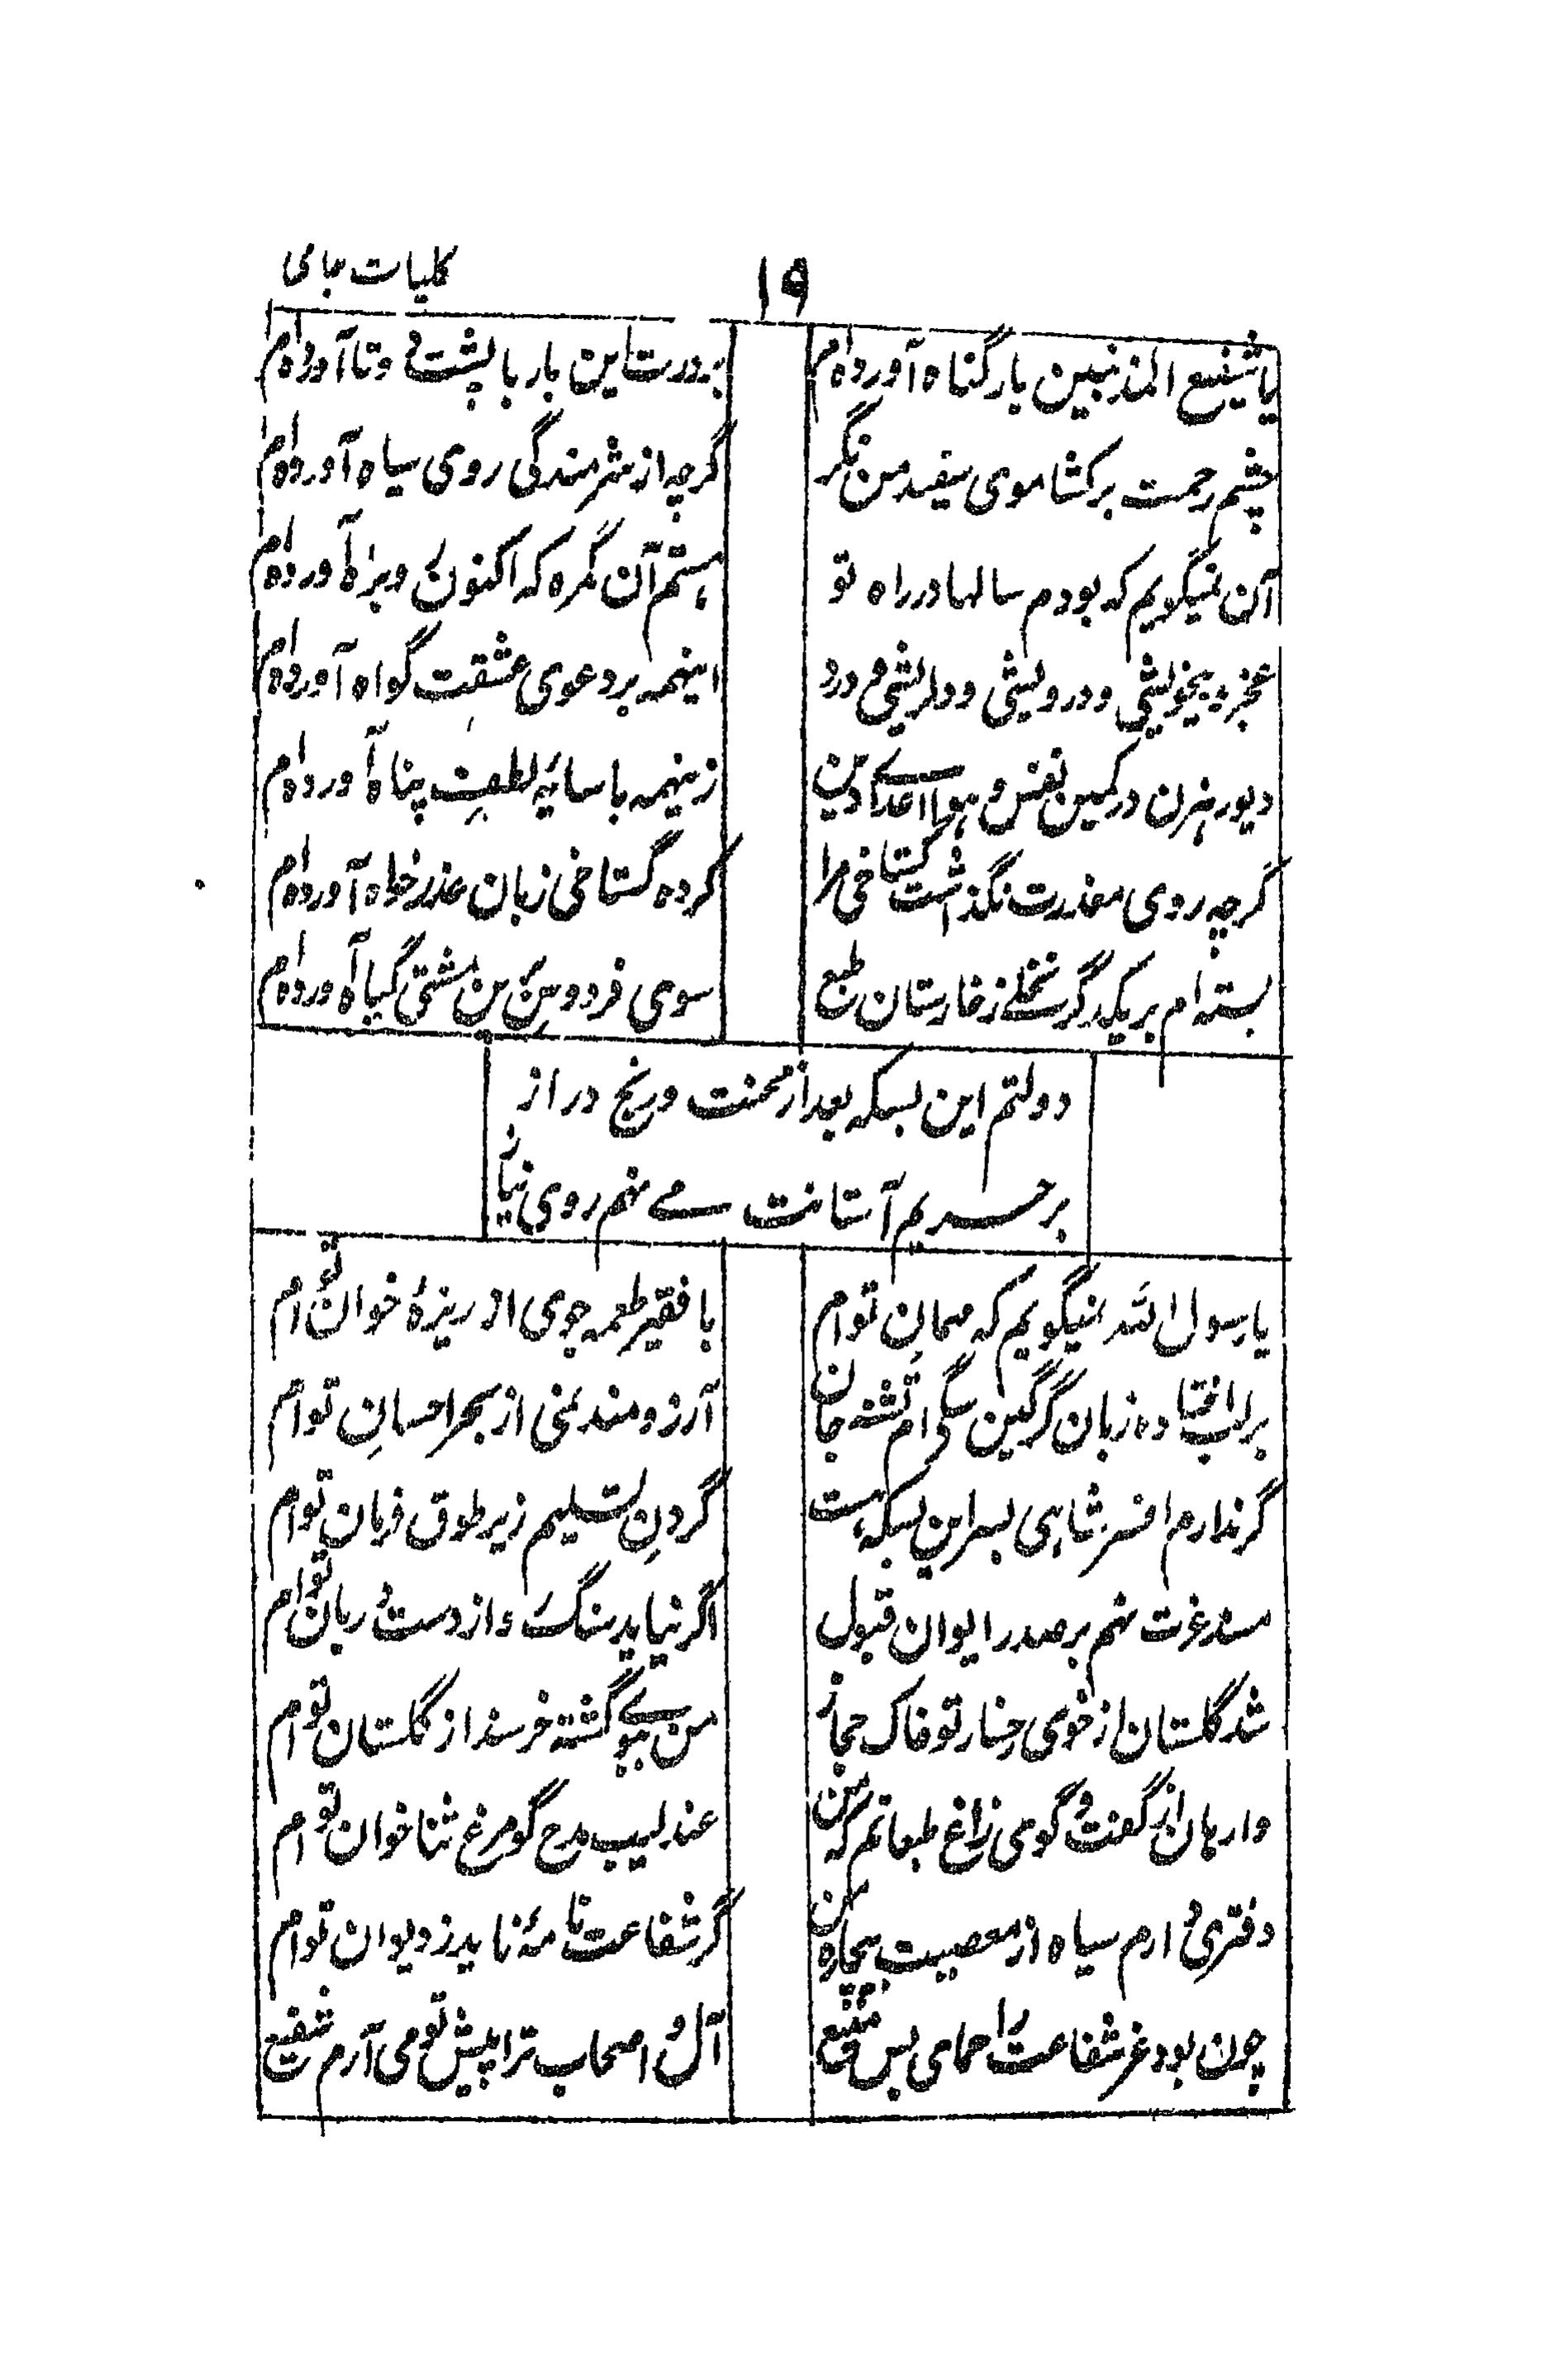 ۱۹
کلیات جامی
یا شفیع المذنبین بار گناه آورده‌ام
بردرت این بار با پشت دوتا آورده‌ام
چشم رحمت برکشا موی سفید من نگر
گرچه از شرمندگی روی سیاه آورده‌ام
آن نمیگویم که بودم سالها در راه تو
هستم آن گمره که اکنون رو براه آورده‌ام
عجز و بیخویشی و درویشی و دلریشی و درد
اینهمه بر دعوی عشقت گواه آورده‌ام
دیو رهزن در کمین نفس و هوا اعدای دین
زینهمه با سایهٔ لطفت پناه آورده‌ام
گرچه روی معذرت نگذاشت گستاخی مرا
کرده گستاخی زبان عذر خواه آورده‌ام
بسته ام بر یکدگر نخلی ز خارستان طبع
سوی فردوس برین مشتی گیاه آورده‌ام
دولتم این بسکه بعد از محنت و رنج دراز
بر حریم آستانت می نهم روی نیاز
یا رسول الله نمیگویم که مهمان توام
یا فقیر طعمه جوی از ریزهٔ خوان توام
بر لب افتاده زبان گرگین سگی ام تشنه جان
آرزومند نمی از بحر احسان توام
گر ندارم افسر شاهی بسر این بسکه هست
گردن تسلیم زیر طوق فرمان توام
مسند عزت نهم بر صدر ایوان قبول
اگر نیاید سنگ رد از دست دربان توام
شد گلستان از خوی رخسار تو خاک حجاز
من ببوئے گشته خرسند از گلستان توام
وارهان از گفت و گوی زاغ طبعانم که من
عندلیب مدح گو مرغ ثناخوان توام
دفتری دارم سیاه از معصیت بیچاره من
گر شفاعت نامهٔ ناید ز دیوان توام
چون بود عز شفاعت را حمای بس منیع
آل و اصحاب ترا پیش تو می آرم شفیع